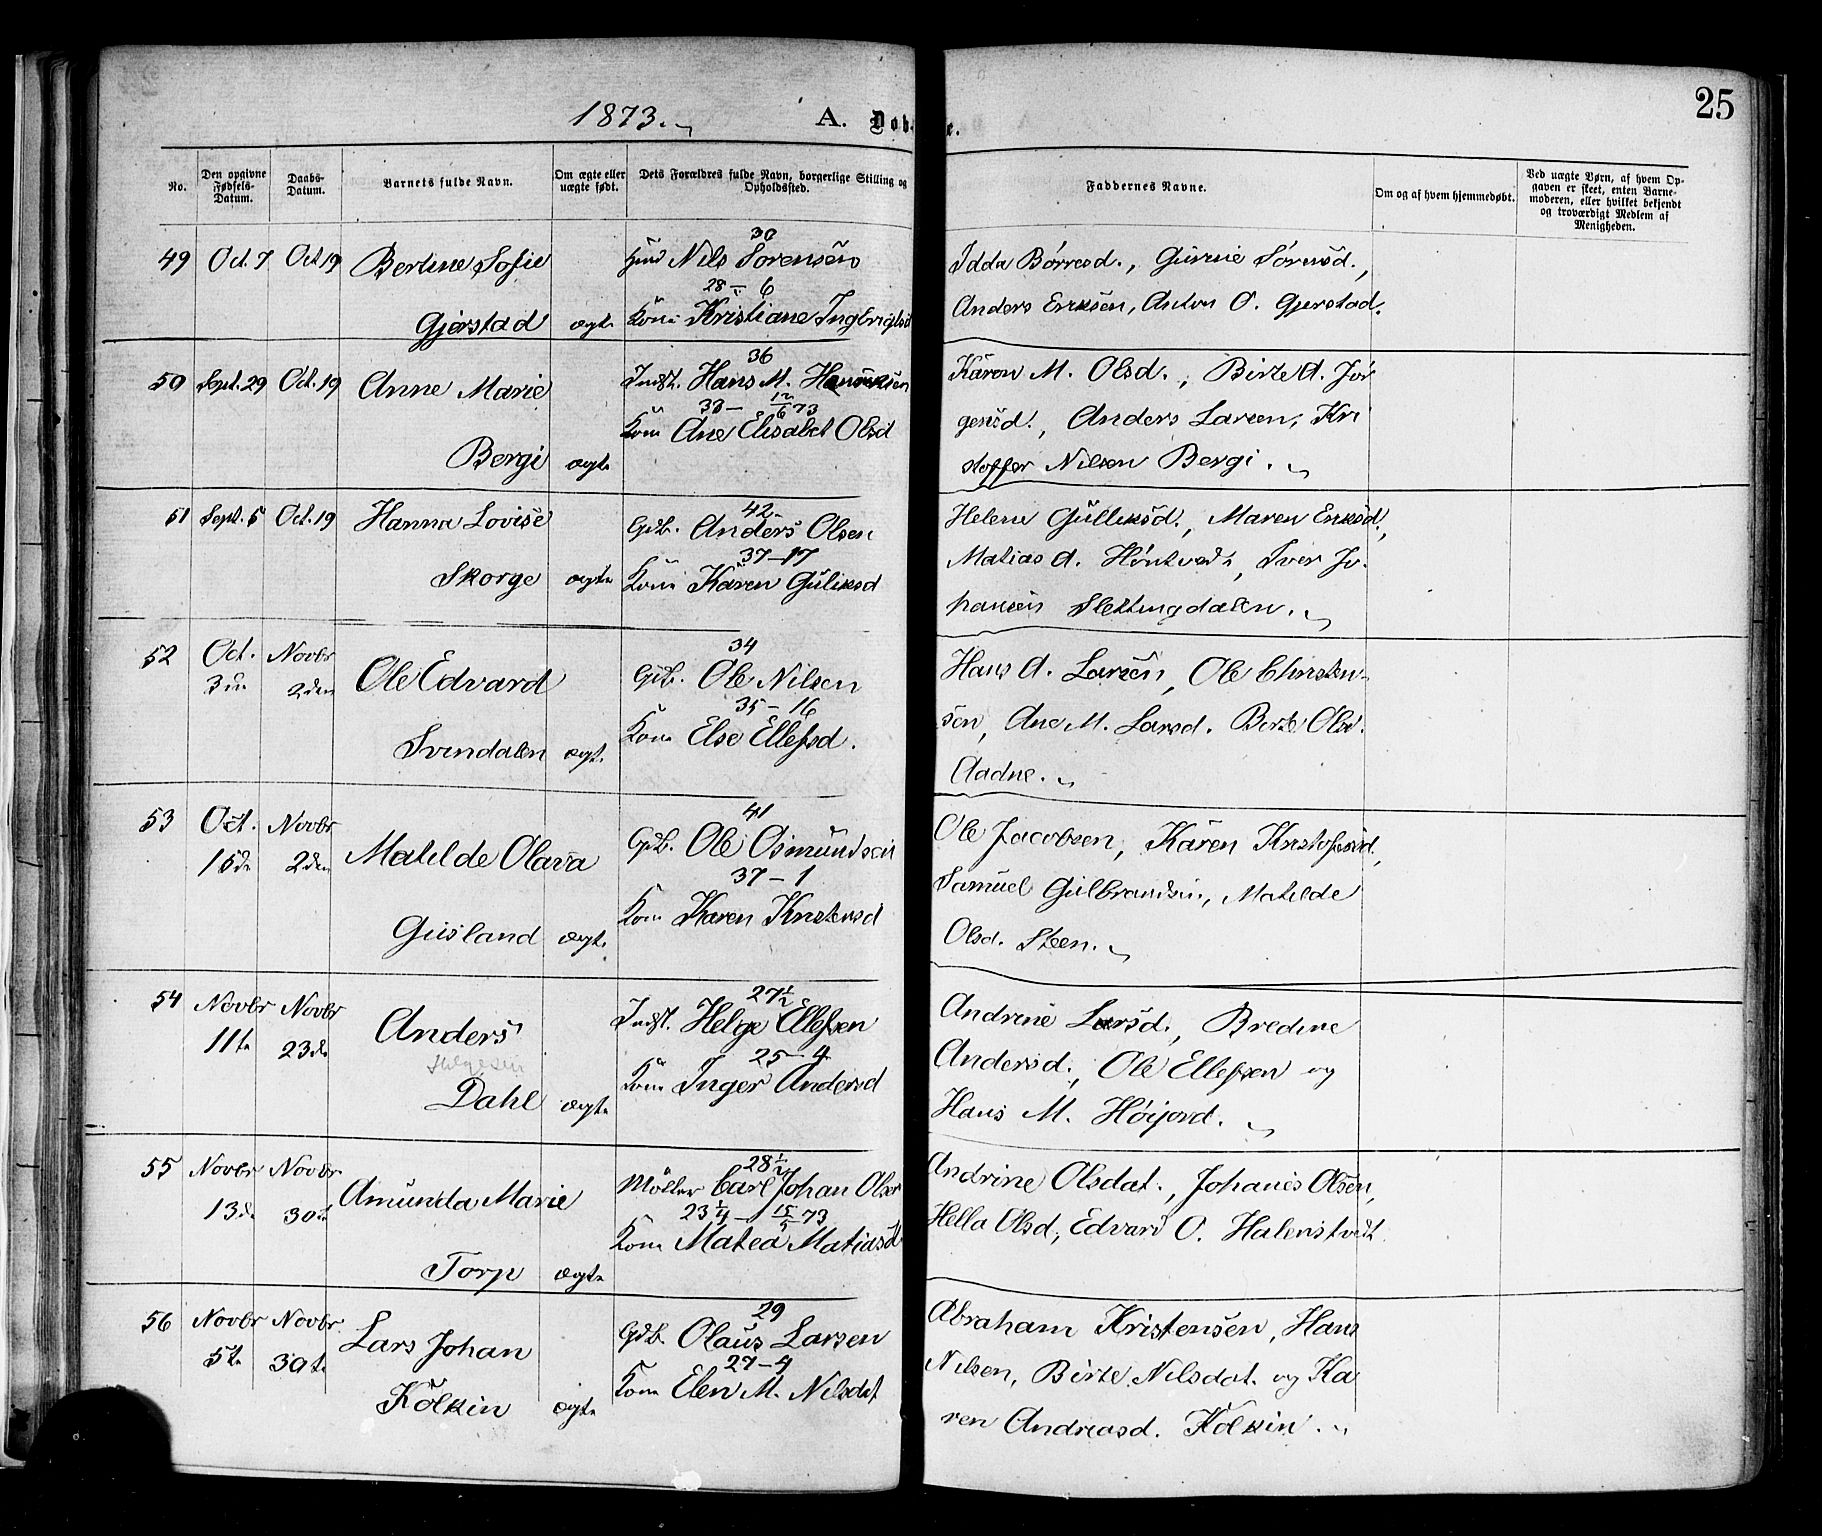 1873. A. Døb e. 25
No. Den opgivne Fødsels-Datum. Daabs-Datum. Barnets fulde Navn. Om ægte eller uægte født. Dets Forældres fulde Navn, borgerlige Stilling og Opholdssted. Faddernes Navne. Om og af hvem hjemmedøbt. Ved uægte Børn, af hvem Opgaven er skeet, enten Barnemoderen, eller hvilket bekjendt og troværdigt Medlem af Menigheden.
30
49 Oct. 7 Oct 19 Bertine Sofie Nils Sörensen Idda Börresd., Gurine Sörensd.,
28 – 6
Gjerstad ægte Kone Kristiane Ingbrigtsd Anders Eriksen, Anton O. Gjerstad.
36
50 Sept. 29 Oct. 19 Anne Marie Indst. Hans M. Hansen Karen M. Olsd., Birte A. Jör
33 – 12/6 73
Kone Ane Elisabet Olsd gensd., Anders Larsen, Kri
Bergi ægte stoffer Nilsen Bergi.
42
51 Sept. 5 Oct. 19 Hanna Lovise Gdb. Anders Olsen Helene Gulliksd., Maren Eriksd.,
37 – 17
Skorge ægte Kone Karen Guliksd Matias A. Höntvedt, Iver Jo-
hansen Slettingdalen.
34
52 Oct. 3die Novbr 2den Ole Edvard Gdb. Ole Nilsen Hans A. Larsen, Ole Christen-
35 – 16
Kone Else Ellefsd. sen, Ane M. Larsd. Birte Olsd.
Svindalen ægte Aadne.
41
53 Oct. 15de Novbr 2den Matilde Olava Gdb. Ole Osmundsen Ole Jacobsen, Karen Kristofersd.,
37 – 1
Kone Karen Kristensd Samuel Gulbrandsen, Matilde
Gusland ægte Olsd. Steen.
27½
54 Novbr 11te Novbr 23de Anders Indst. Helge Ellefsen Andrine Larsd., Bredine
25 – 4
Helgesen Kone Inger Andersd Andersd., Ole Ellefsen og
Dahl ægte Hans M. Höijord.
28½
55 Novbr 13de Novbr 30te Amunda Marie Möller Carl Johan Olsen Andrine Olsdat., Johanes Olsen,
23¼ – 15/5 73
Kone Matea Matiasd Hella Olsd, Edvard O. Halenstvedt
Torp ægte
29
56 Novbr 5te Novbr 30te Lars Johan Gdb. Olaus Larsen Abraham Kristensen, Hans
27 – 4
Kone Elen M. Nilsdat Nilsen, Birte Nilsdat. og Ka
Kölkin ægte ren Andreasd. Kölkin.